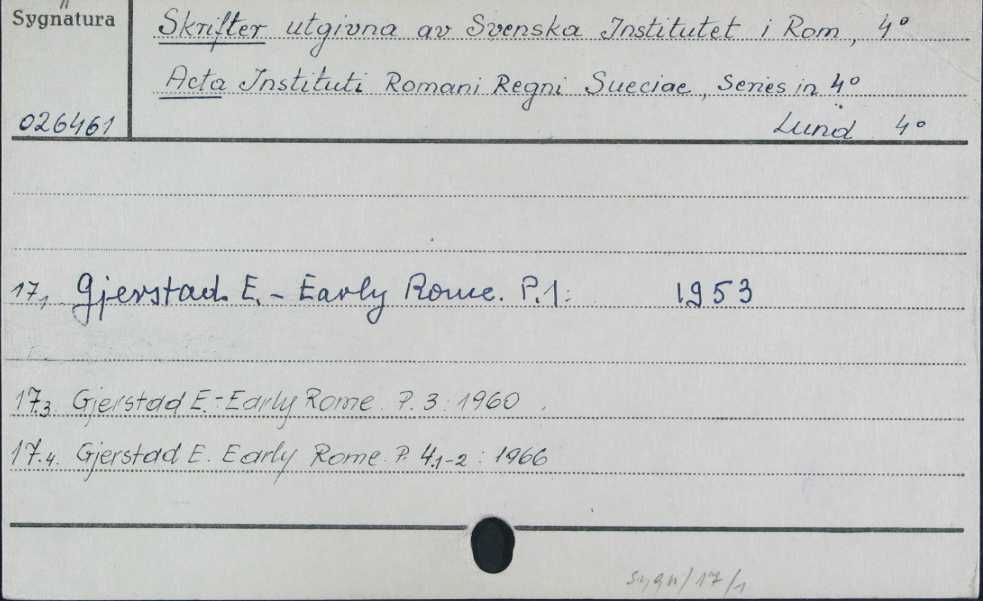 Sygnatura
026461
Skrifter utgivna av Svenska Institutet i Rom, 4°
Acta Instituti Romani Regni Sueciae, Series in 4°
Lund 4°
17,1 Gjerstad E. - Early Rome. P.1: 1953
17.3 Gjerstad E. - Early Rome. P. 3: 1960
17.4. Gjerstad E. Early Rome. P. 4.1-2: 1966
sygn/17/1